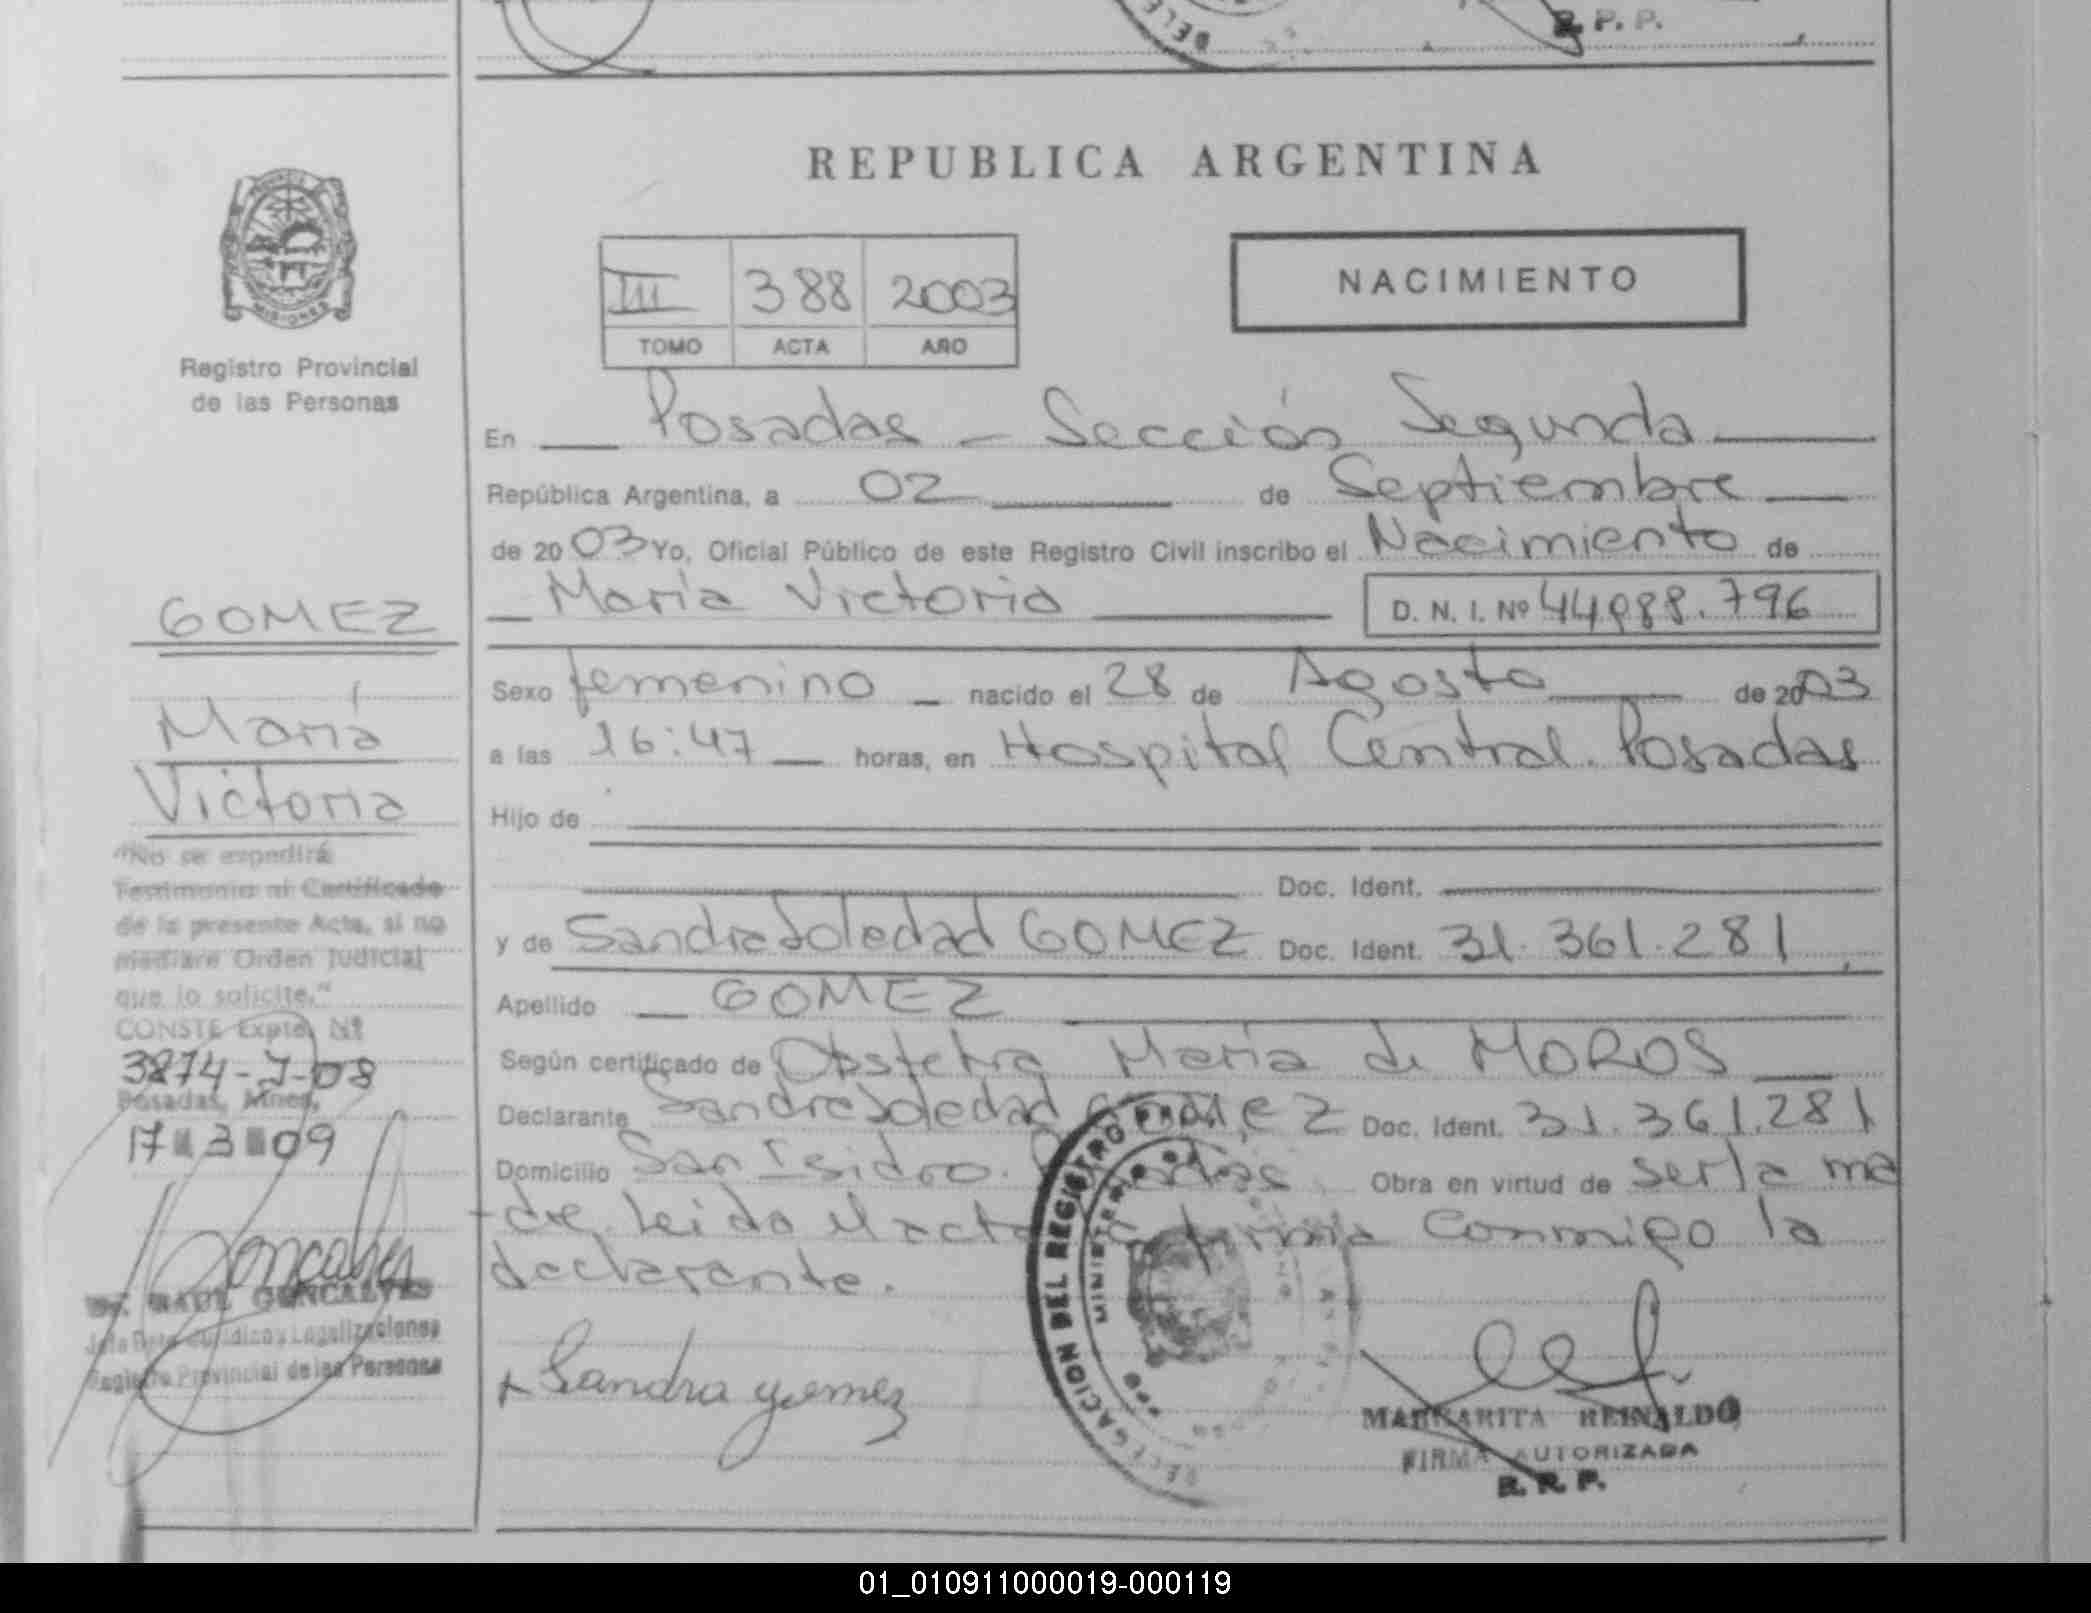 R. P. P.
REPUBLICA ARGENTINA
NACIMIENTO
III 388 2003
TOMO ACTA AÑO
MISIONES
Registro Provincial
de las Personas
En Posadas - Sección Segunda
República Argentina, a 02 de Septiembre
de 2003 Yo, Oficial Público de este Registro Civil inscribo el Nacimiento de
María Victoria D. N. I. Nº 44.988.796
Sexo femenino nacido el 28 de Agosto de 2003
a las 16:47 horas, en Hospital Central. Posadas
Hijo de
Doc. Ident.
y de Sandra Soledad GOMEZ Doc. Ident. 31.361.281
Apellido GOMEZ
Según certificado de Obstetra María de MOROS
Declarante Sandra Soledad GOMEZ Doc. Ident. 31.361.281
Domicilio San Isidro. Posadas Obra en virtud de ser la ma
-dre. Leida el acta la firma conmigo la
declarante.
Sandra gomez
DELEGACION DEL REGISTRO
MINISTERIO
MARGARITA REINALDO
FIRMA AUTORIZADA
R. P. P.
GOMEZ
María
Victoria
"No se expedirá
Testimonio ni Certificado
de la presente Acta, si no
mediare Orden Judicial
que lo solicite."
CONSTE Expte. Nº
3874-J-08
Posadas, Mnes,
17 3 09
Goncalves
Dr. RAUL GONCALVES
Jefe Dpto. Jurídico y Legalizaciones
Registro Provincial de las Personas
01_010911000019-000119